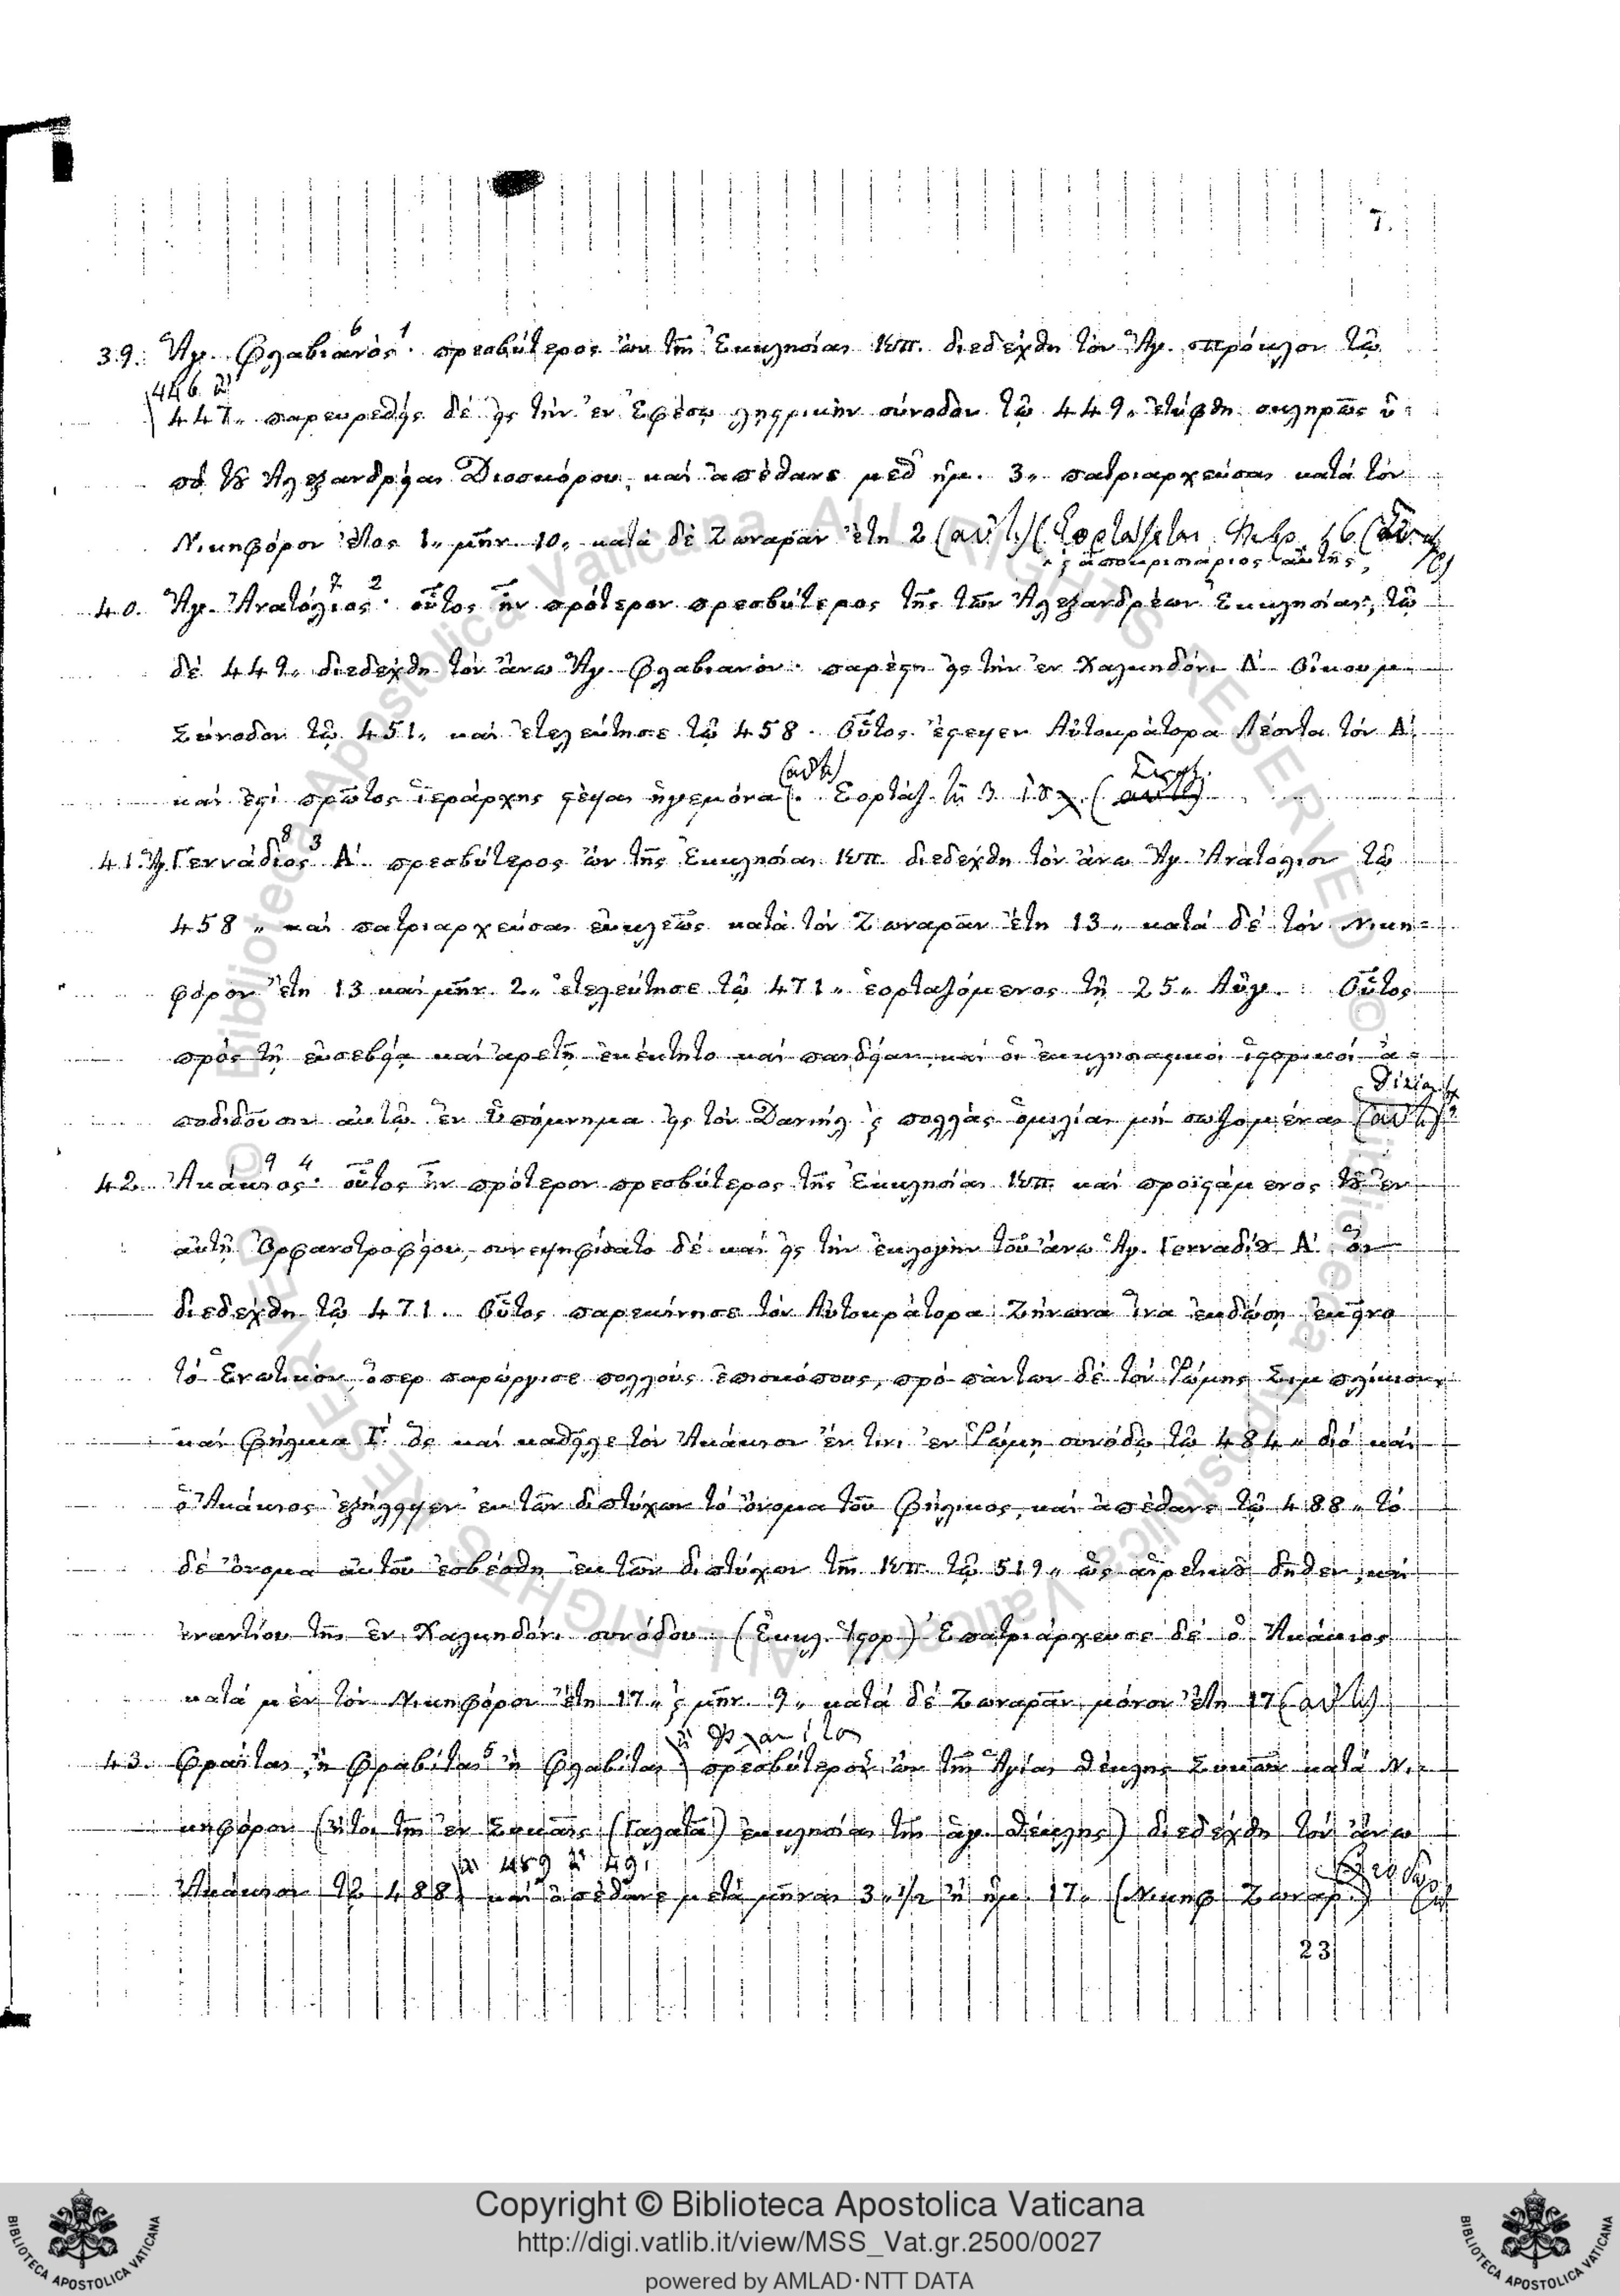 7.
6 1
39. Ἅγ. Φλαβιανός· πρεσβύτερος ὢν τῆς Ἐκκλησίας Κωπ. διεδέχθη τὸν Ἅγ. Πρόκλον τῷ
446 ἢ
447 „ παρευρεθεὶς δὲ εἰς τὴν ἐν Ἐφέσῳ λῃστρικὴν σύνοδον τῷ 449 „ ἐτύφθη σκληρῶς ὑ-
πὸ τοῦ Ἀλεξανδρείας Διοσκόρου, καὶ ἀπέθανε μεθ' ἡμ. 3 „ πατριαρχεύσας κατὰ τὸν
Νικηφόρον ἔτος 1 „ μῆν. 10 „ κατὰ δὲ Ζωναρᾶν ἔτη 2 (αὐτ.) (ἑορτάζεται 16
καὶ ἀποκρισιάριος αὐτῆς,
7 2
40. Ἅγ. Ἀνατόλιος· οὗτος ἦν πρότερον πρεσβύτερος τῆς τῶν Ἀλεξανδρέων Ἐκκλησίας, τῷ
δὲ 449 „ διεδέχθη τὸν ἄνω Ἅγ. Φλαβιανόν. παρέστη εἰς τὴν ἐν Χαλκηδόνι Δ' Οἰκουμ.
Σύνοδον τῷ 451 „ καὶ ἐτελεύτησε τῷ 458. Οὗτος ἔστεψεν Αὐτοκράτορα Λέοντα τὸν Α'.
(αὐτ.)
καὶ ἐστὶ πρῶτος ἱεράρχης στέψας ἡγεμόνα. Ἑορτάζ. τῇ 3 Ἰουλ.
8 3
41. Ἅγ. Γεννάδιος Α'. πρεσβύτερος ὢν τῆς Ἐκκλησίας Κωπ. διεδέχθη τὸν ἄνω Ἅγ. Ἀνατόλιον τῷ
458 „ καὶ πατριαρχεύσας εὐκλεῶς κατὰ τὸν Ζωναρᾶν ἔτη 13 „ κατὰ δὲ τὸν Νικη-
φόρον ἔτη 13 καὶ μῆν. 2 „ ἐτελεύτησε τῷ 471 „ ἑορταζόμενος τῇ 25 „ Αὐγ. Οὗτος
πρὸς τῇ εὐσεβείᾳ καὶ ἀρετῇ ἐκέκτητο καὶ παιδείαν, καὶ οἱ ἐκκλησιαστικοὶ ἱστορικοὶ ἀ-
ποδίδουσιν αὐτῷ ἓν Ὑπόμνημα εἰς τὸν Δανιὴλ καὶ πολλὰς ὁμιλίας μὴ σωζομένας (αὐτ.)
9 4
42. Ἀκάκιος· οὗτος ἦν πρότερον πρεσβύτερος τῆς Ἐκκλησίας Κωπ. καὶ προϊστάμενος τοῦ ἐν
αὐτῇ Ὀρφανοτροφείου, συνεψηφίσατο δὲ καὶ εἰς τὴν ἐκλογὴν τοῦ ἄνω Ἁγ. Γενναδίου Α'. ὃν
διεδέχθη τῷ 471. Οὗτος παρεκίνησε τὸν Αὐτοκράτορα Ζήνωνα ἵνα ἐκδώσῃ ἐκεῖνο
τὸ Ἑνωτικόν, ὅπερ παρώργισε πολλοὺς ἐπισκόπους, πρὸ πάντων δὲ τὸν Ῥώμης Σιμπλίκιον,
καὶ Φήλικα Γ'. ὃς καὶ καθεῖλε τὸν Ἀκάκιον ἔν τινι ἐν Ῥώμῃ συνόδῳ τῷ 484 „ διὸ καὶ
ὁ Ἀκάκιος ἐξήλειψεν ἐκ τῶν διπτύχων τὸ ὄνομα τοῦ Φήλικος, καὶ ἀπέθανε τῷ 488 „ τὸ
δὲ ὄνομα αὐτοῦ ἐσβέσθη ἐκ τῶν διπτύχων τῆς Κωπ. τῷ 519 „ ὡς αἱρετικοῦ δῆθεν, καὶ
ἐναντίου τῆς ἐν Χαλκηδόνι συνόδου. (Ἐκκλ. Ἱστορ.) Ἐπατριάρχευσε δὲ ὁ Ἀκάκιος
κατὰ μὲν τὸν Νικηφόρον ἔτη 17 „ καὶ μῆν. 9 „ κατὰ δὲ Ζωναρᾶν μόνον ἔτη 17 (αὐτ.)
ἢ Φλανίτας
5
43. Φραΐτας, ἢ Φραβίτας ἢ Φλαβίτας πρεσβύτερος ὢν τῆς Ἁγίας Θέκλης Συκῶν κατὰ Νι-
κηφόρον (ἤτοι τῆς ἐν Συκαῖς (Γαλατᾷ) ἐκκλησίας τῆς ἁγ. Θέκλης) διεδέχθη τὸν ἄνω
ἢ 489 ἢ 491
Ἀκάκιον τῷ 488 καὶ ἀπέθανε μετὰ μῆνας 3 „ 1/2 ἢ ἡμ. 17 „ (Νικηφ. Ζωναρ.)
23
Copyright © Biblioteca Apostolica Vaticana
http://digi.vatlib.it/view/MSS_Vat.gr.2500/0027
powered by AMLAD·NTT DATA